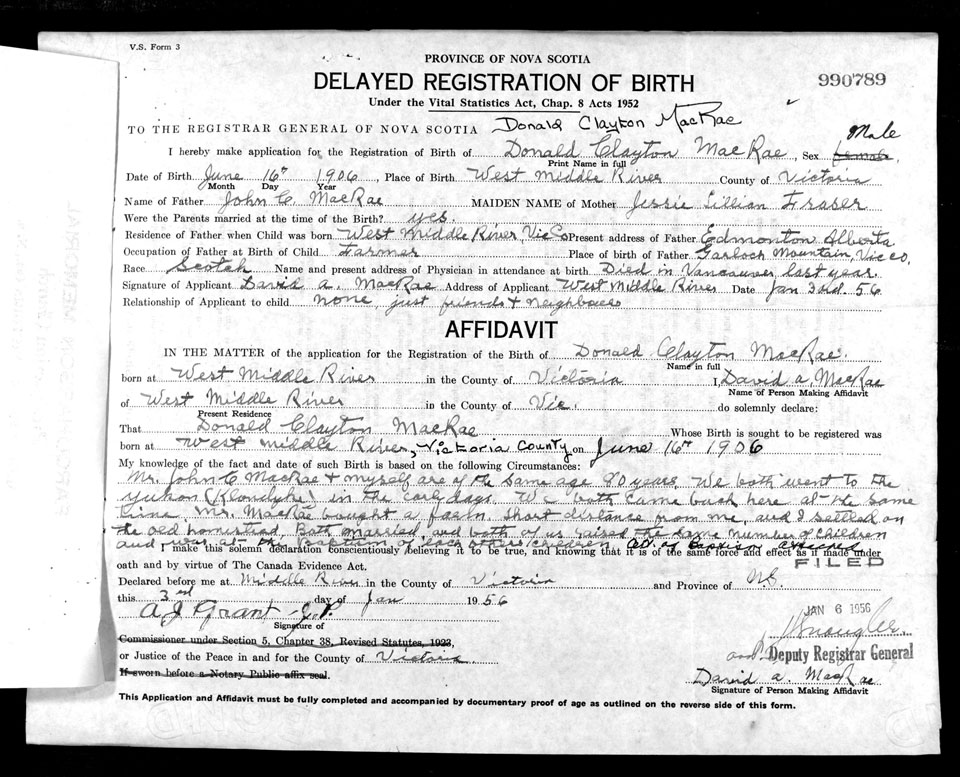 V.S. Form 3
PROVINCE OF NOVA SCOTIA
DELAYED REGISTRATION OF BIRTH
990789
Under the Vital Statistics Act, Chap. 8 Acts 1952
TO THE REGISTRAR GENERAL OF NOVA SCOTIA Donald Clayton MacRae
Male
I hereby make application for the Registration of Birth of Donald Clayton MacRae, Sex female,
Print Name in full
Date of Birth June 16th 1906, Place of Birth West Middle River County of Victoria
Month Day Year
Name of Father John C. MacRae MAIDEN NAME of Mother Jessie Lillian Fraser
Were the Parents married at the time of the Birth? yes.
Residence of Father when Child was born West Middle River, Vic Co Present address of Father Edmonton Alberta
Occupation of Father at Birth of Child Farmer Place of birth of Father Garloch Mountain, Vic Co,
Race Scotch Name and present address of Physician in attendance at birth Died in Vancouver last year.
Signature of Applicant David A. MacRae Address of Applicant West Middle River Date Jan 3rd. 56
Relationship of Applicant to child none, just friends & neighbours
AFFIDAVIT
IN THE MATTER of the application for the Registration of the Birth of Donald Clayton MacRae.
Name in full
born at West Middle River in the County of Victoria I, David A. MacRae
Name of Person Making Affidavit
of West Middle River in the County of Vic. do solemnly declare:
Present Residence
That Donald Clayton MacRae Whose Birth is sought to be registered was
born at West Middle River, Victoria County on June 16th 1906
My knowledge of the fact and date of such Birth is based on the following Circumstances:
Mr. John C MacRae & myself are of the same age 80 years, We both went to the
Yukon (Klondyke) in the early days. We both came back here at the same
time. Mr. MacRae bought a farm. Short distance from me, and I settled on
the old homestead, Both married, and both of us raised the same number of children
and was at the baptism of each others children as is Baptism attached
I make this solemn declaration conscientiously believing it to be true, and knowing that it is of the same force and effect as if made under
oath and by virtue of The Canada Evidence Act.
FILED
Declared before me at Middle River in the County of Victoria and Province of N.S.
this 3rd day of Jan 1956
JAN 6 1956
A J Grant - J.P.
Signature of
Commissioner under Section 5, Chapter 38, Revised Statutes, 1923,
or Justice of the Peace in and for the County of Victoria
Deputy Registrar General
If sworn before a Notary Public affix seal.
David A. MacRae
Signature of Person Making Affidavit
This Application and Affidavit must be fully completed and accompanied by documentary proof of age as outlined on the reverse side of this form.